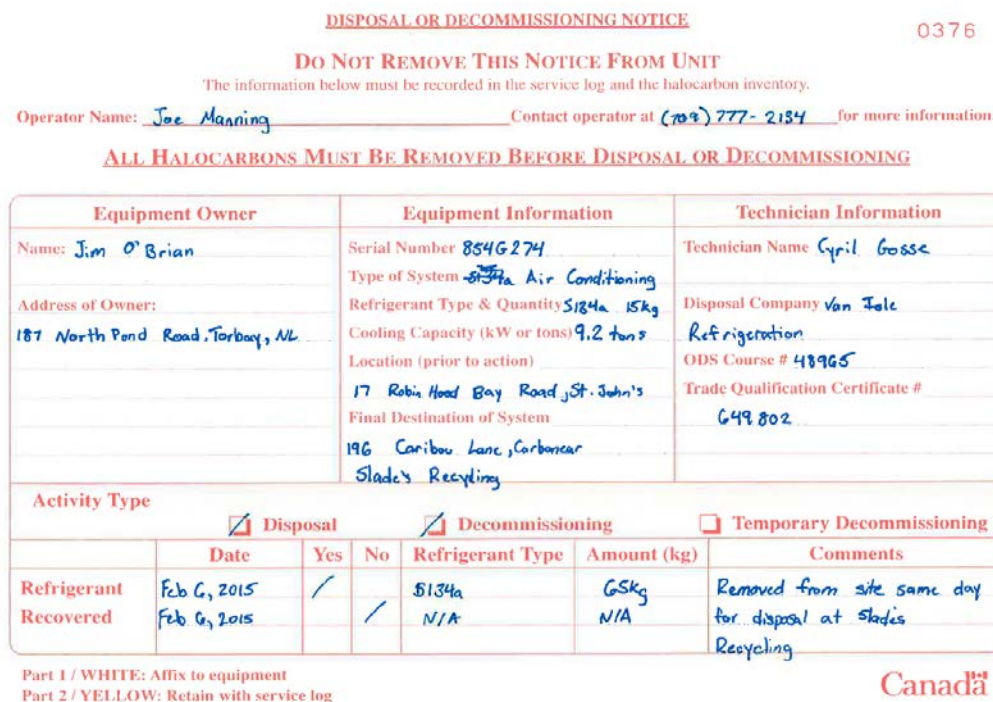 DISPOSAL OR DECOMMISSIONING NOTICE
0376
DO NOT REMOVE THIS NOTICE FROM UNIT
The information below must be recorded in the service log and the halocarbon inventory.
Operator Name: Joe Manning Contact operator at (709) 777-2134 for more information.
ALL HALOCARBONS MUST BE REMOVED BEFORE DISPOSAL OR DECOMMISSIONING
Equipment Owner
Name: Jim O'Brian
Address of Owner:
187 North Pond Road, Torbay, NL
Equipment Information
Serial Number 854G274
Type of System Air Conditioning
Refrigerant Type & Quantity S134a 15kg
Cooling Capacity (kW or tons) 9.2 tons
Location (prior to action)
17 Robin Hood Bay Road, St. John's
Final Destination of System
196 Caribou Lane, Carbonear
Slade's Recycling
Technician Information
Technician Name Cyril Gosse
Disposal Company Van
Refrigeration
ODS Course # 48965
Trade Qualification Certificate #
649802
Activity Type
Disposal Decommissioning Temporary Decommissioning
Date Yes No Refrigerant Type Amount (kg) Comments
Refrigerant Feb 6, 2015 / S134a 65kg Removed from site same day
Recovered Feb 6, 2015 / N/A N/A for disposal at Slade's
Recycling
Part 1 / WHITE: Affix to equipment
Part 2 / YELLOW: Retain with service log
Canada